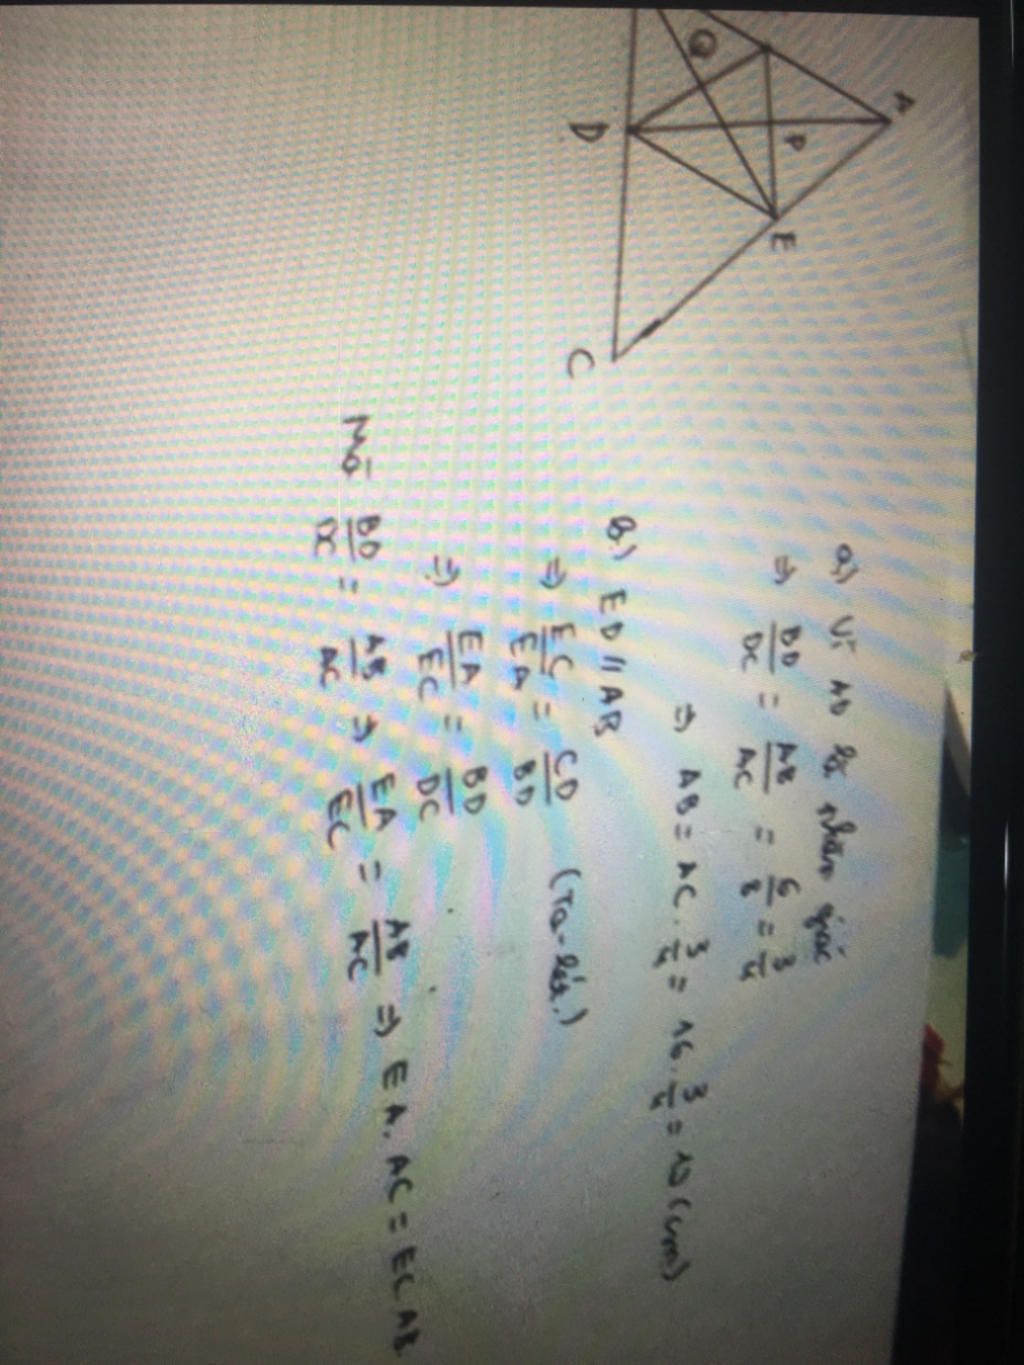 A
P
E
Q
D
C
a) Vì AD là phân giác
⇒ BD/DC = AB/AC = 6/8 = 3/4
⇒ AB = AC . 3/4 = 16 . 3/4 = 12 (cm)
b) ED // AB
⇒ EC/EA = CD/BD (Ta-lét.)
⇒ EA/EC = BD/DC
Mà BD/DC = AB/AC ⇒ EA/EC = AB/AC ⇒ EA. AC = EC AB.